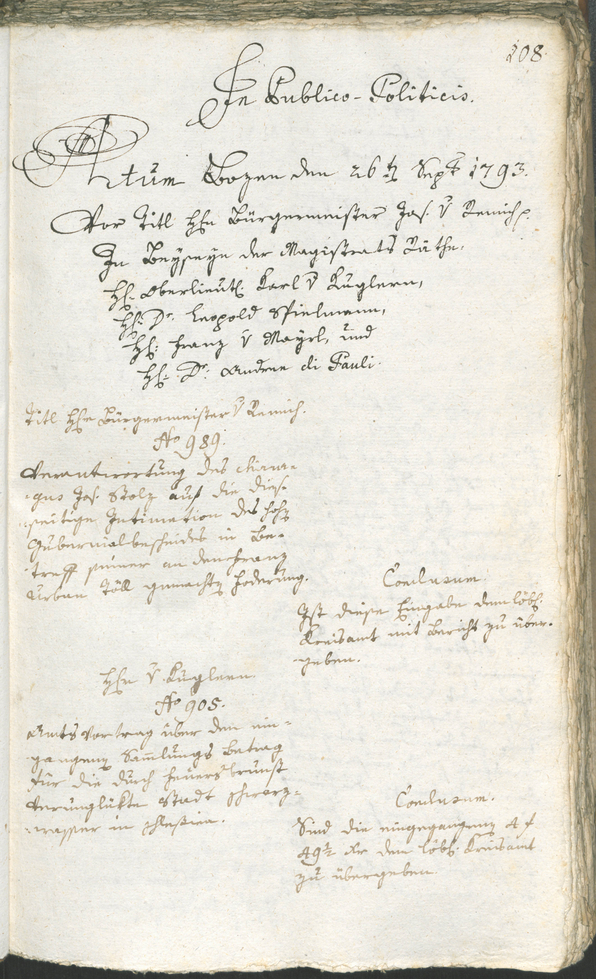 208
In Publico-Politicis.
Actum Bozen den 26 ten Sept 1793.
Vor Titl Hhn Bürgermeister Jos. v Remich p.
In Beyseyn der Magistrats Räthe.
Hh. Oberlieut. Karl v Kuglern,
Hh. Dr. Leopold Spielmann,
Hh: Franz v Mayrl, und
Hh: Dr: Andree di Pauli.
Titl Hhn Bürgermeister v Remich.
No 989.
Verantwortung des chirur-
gus Jos. Stolz auf die dies-
seitige Intimation des hohen
Gubernialbescheides in Be-
treff seiner an den Franz
Urban Töll gemachten Foderung.
Conclusum.
Ist diese Eingabe dem löbl.
Kreisamt mit Bericht zu über-
geben.
Hhn v Kuglern.
No 905.
Amtsvortrag über den ein-
gangenen Sammlungs Betrag
für die durch Feuersbrunst
verunglükte Stadt Schwarz-
wasser in Schlesien.
Conclusum.
Sind die eingegangenen 4 f
49 ½ kr dem löbl. Kreisamt
zu übergeben.